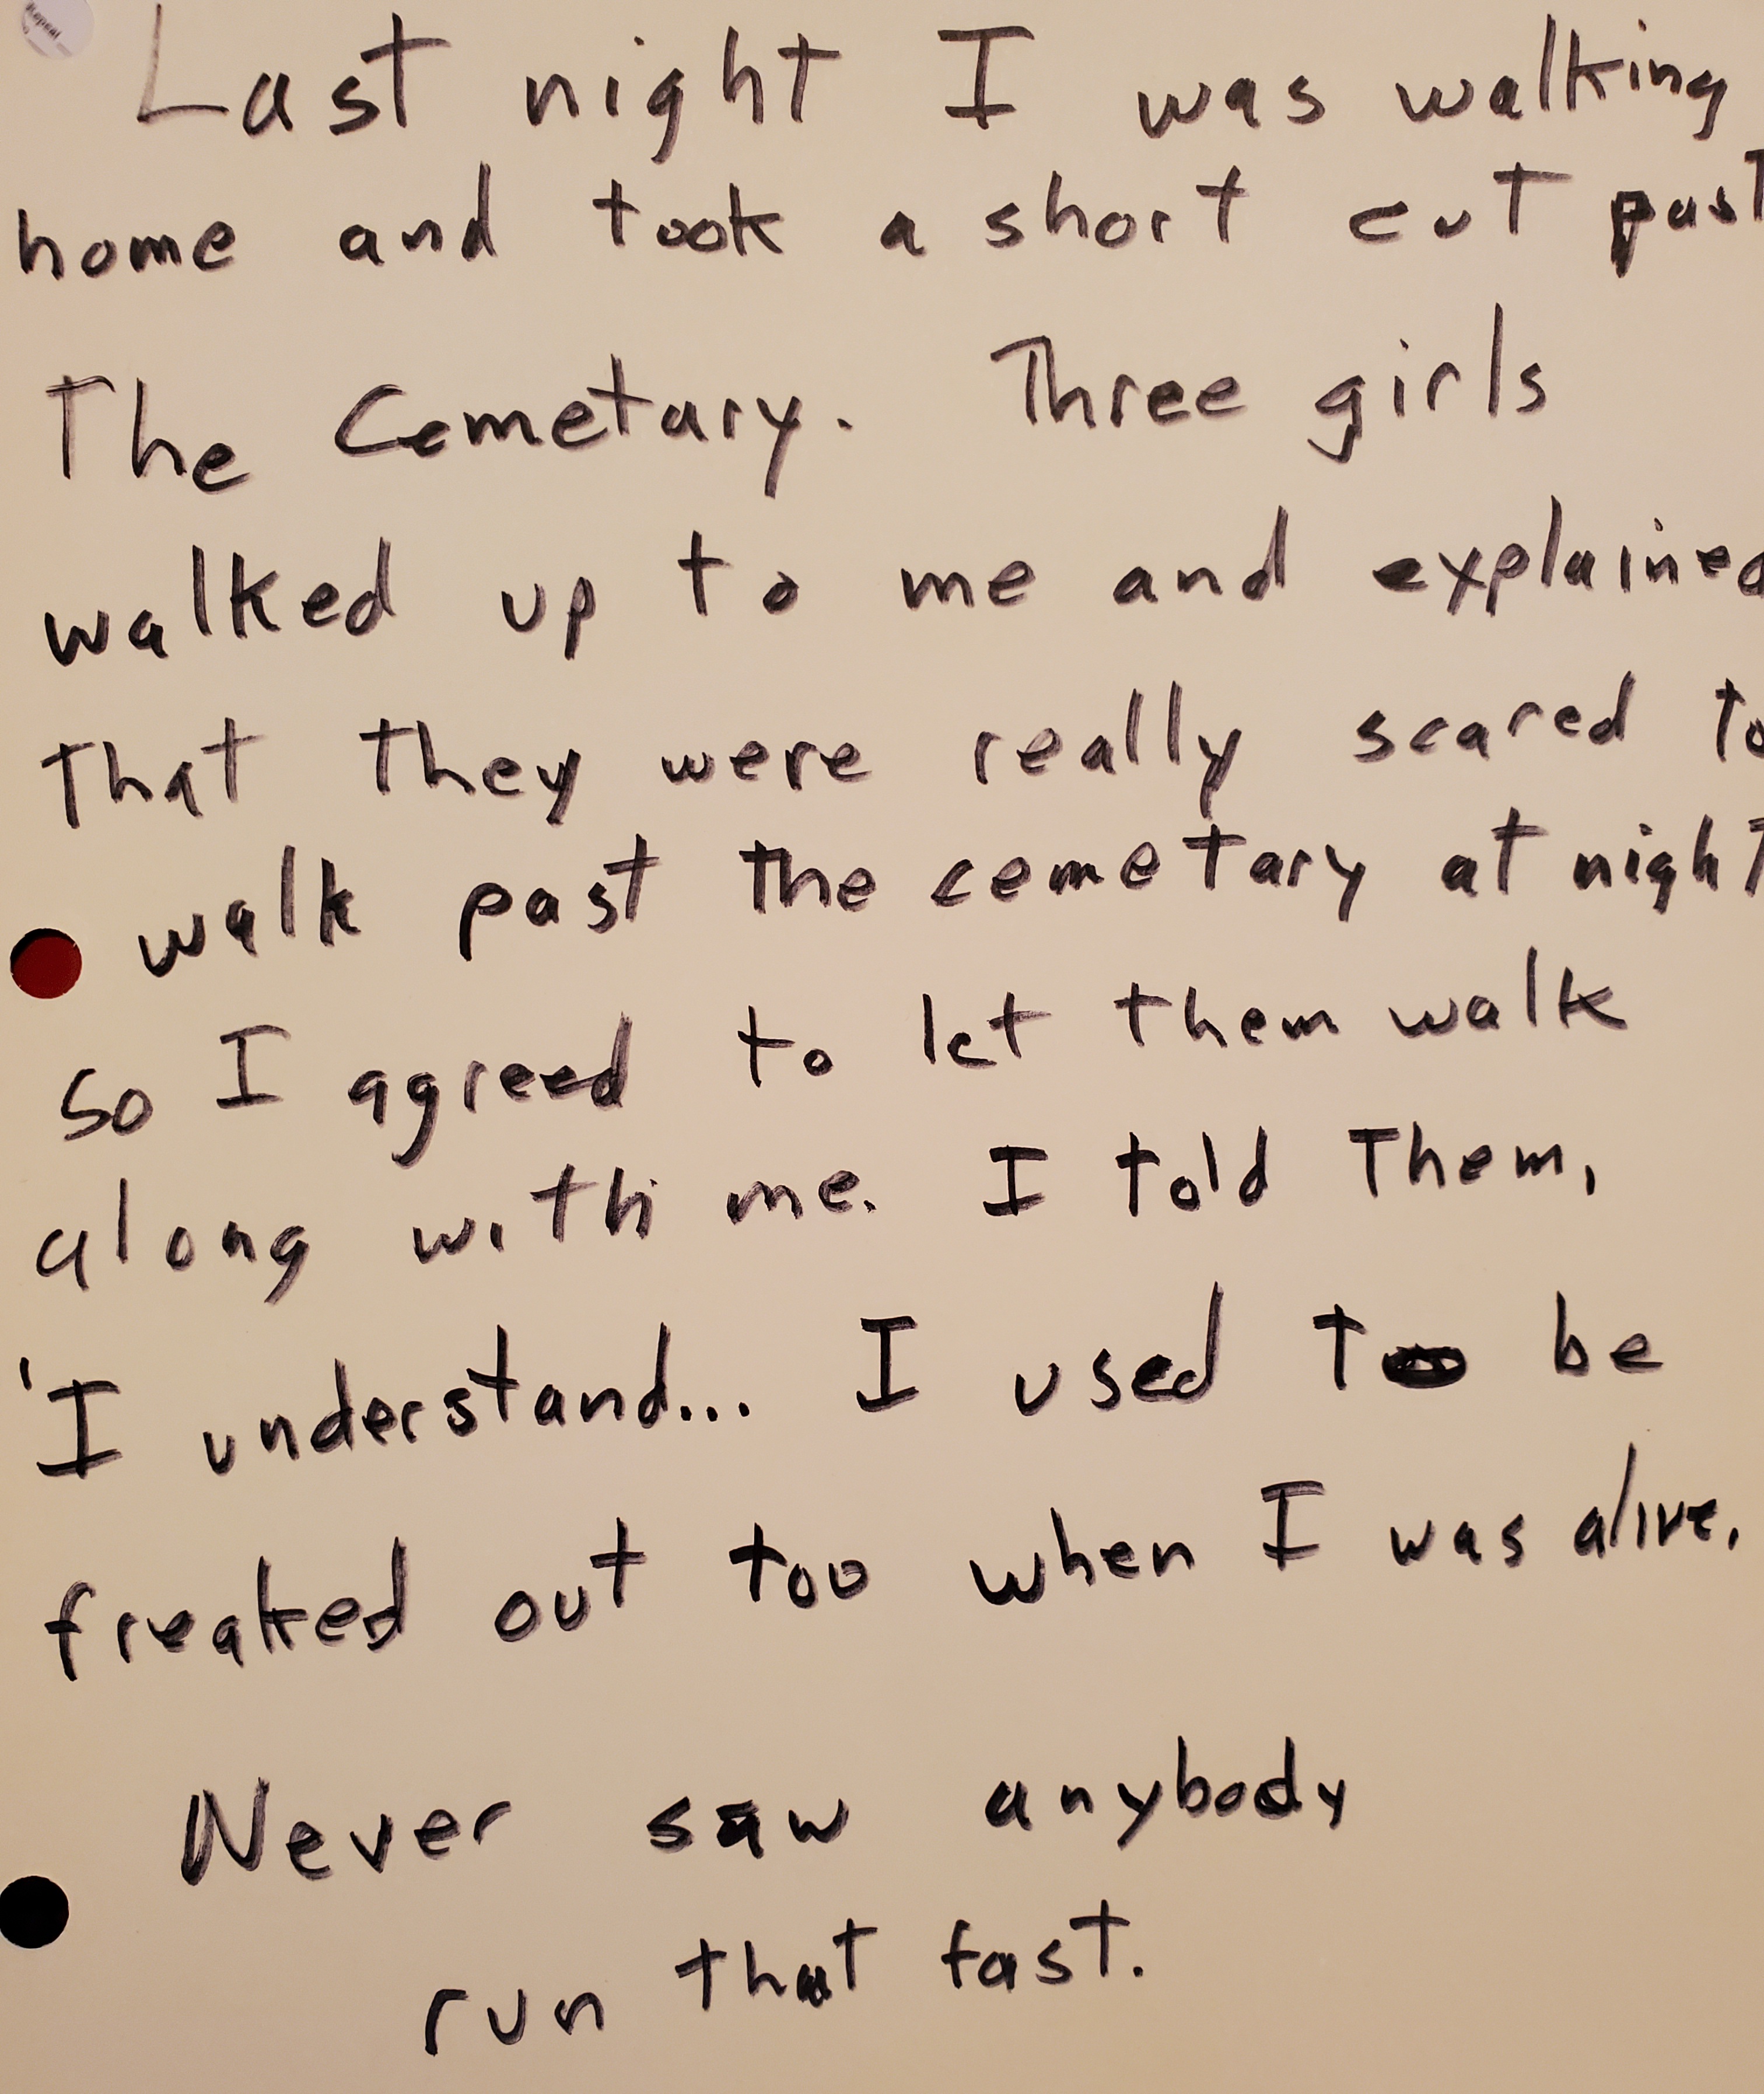 Repeat
Last night I was walking
home and took a short cut past
The Cemetary. Three girls
walked up to me and explained
That they were really scared to
walk past the cemetary at night
so I agreed to let them walk
along with me. I told Them,
'I understand... I used to be
freaked out too when I was alive.
Never saw anybody
run that fast.